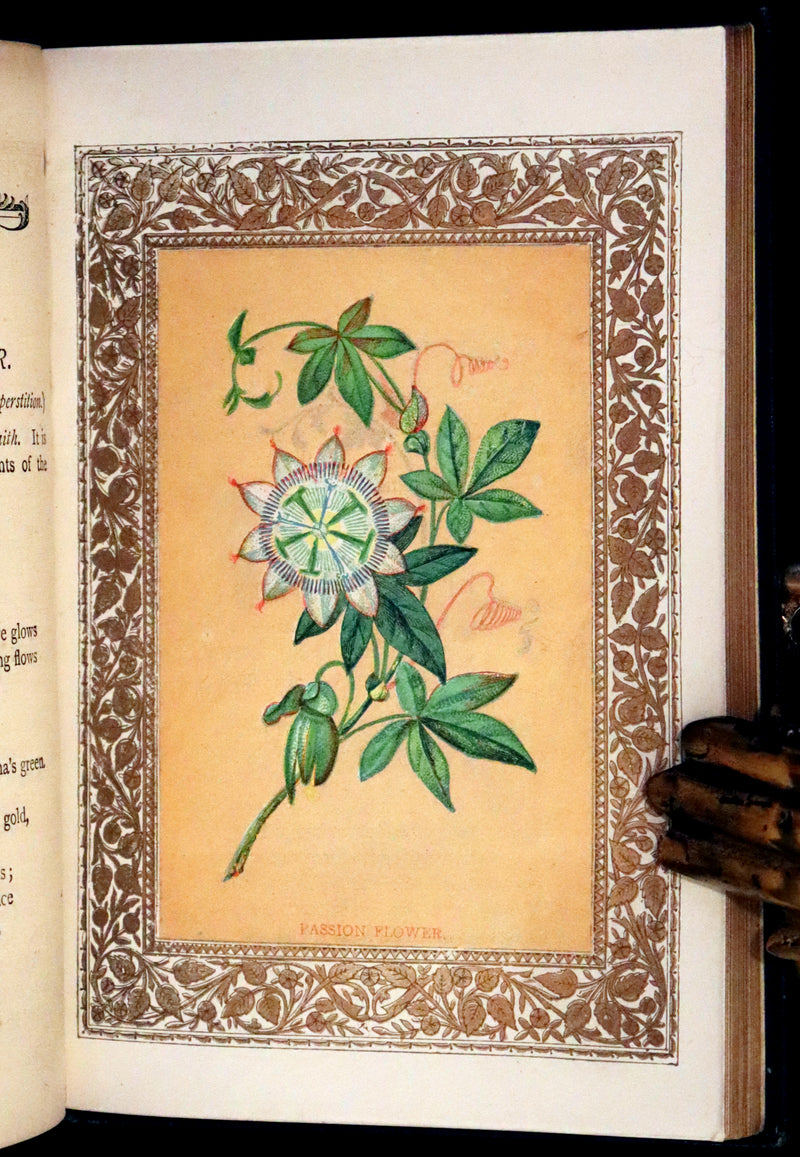 R.
perstition.)
aith. It is
nts of the
e glows
ng flows
na's green
gold,
s;
ce
PASSION FLOWER.